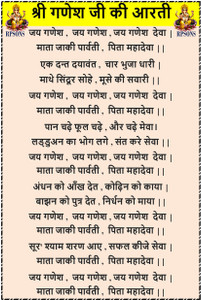 श्री गणेश जी की आरती
RPSONS RPSONS
जय गणेश , जय गणेश , जय गणेश देवा |
माता जाकी पार्वती , पिता महादेवा ||
एक दन्त दयावंत , चार भुजा धारी |
माथे सिंदूर सोहे , मूसे की सवारी ||
जय गणेश , जय गणेश , जय गणेश देवा |
माता जाकी पार्वती , पिता महादेवा ||
पान चढ़े फूल चढ़े , और चढ़े मेवा।
लड्डुअन का भोग लगे , संत करे सेवा ||
जय गणेश , जय गणेश , जय गणेश देवा |
माता जाकी पार्वती , पिता महादेवा ||
अंधन को आँख देत , कोढ़िन को काया |
बाझन को पुत्र देत , निर्धन को माया ||
जय गणेश , जय गणेश , जय गणेश देवा |
माता जाकी पार्वती , पिता महादेवा ||
सूर' श्याम शरण आए , सफल कीजे सेवा |
माता जाकी पार्वती , पिता महादेवा ||
जय गणेश , जय गणेश , जय गणेश देवा |
माता जाकी पार्वती , पिता महादेवा ||